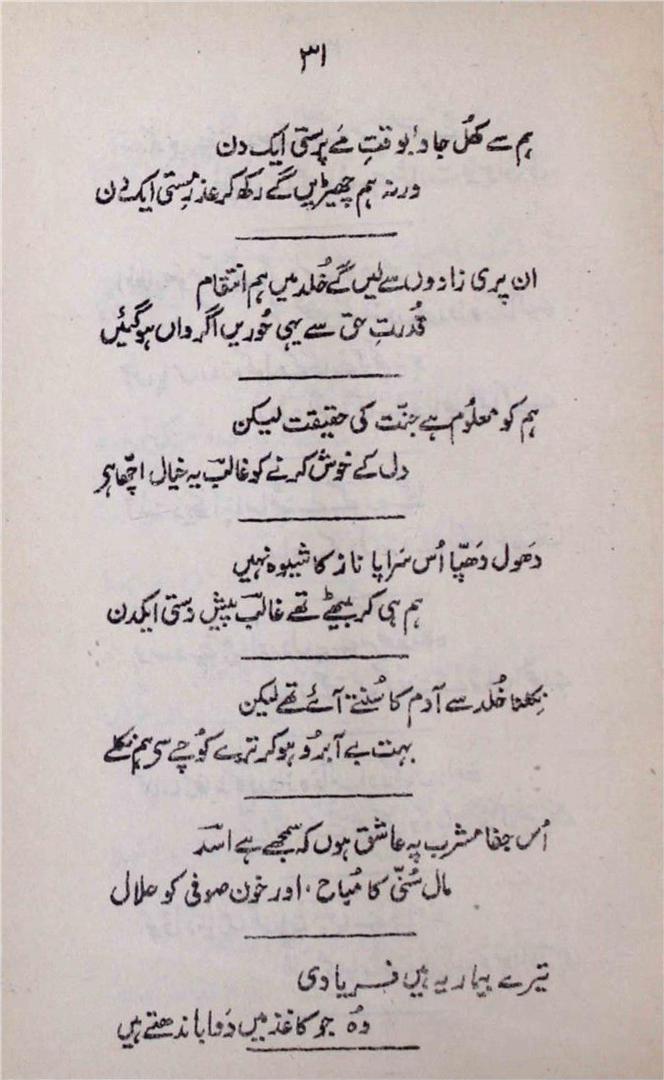 ۳۱
ہم سے کھُل جاؤ بوقتِ مَے پرستی ایک دن
ورنہ ہم چھیڑیں گے رکھ کر عذرِ مستی ایک دن
ان پری زادوں سے لیں گے خُلد میں ہم انتقام
قُدرتِ حق سے یہی حُوریں اگر واں ہوگئیں
ہم کو معلُوم ہے جنّت کی حقیقت لیکن
دل کے خوش کرنے کو غالبؔ یہ خیال اچھّا ہے
دَھول دَھپّا اُس سَراپا ناز کا شیوہ نہیں
ہم ہی کر بیٹھے تھے غالبؔ پیش دستی ایکدن
نِکلنا خُلد سے آدم کا سُنتے آئے تھے لیکن
بہت بے آبرُو ہو کر ترے کُوچے سی ہم نکلے
اُس جفا مشرب پہ عاشق ہوں کہ سمجھے ہے اسدؔ
مال سُنّی کا مُباح، اور خون صوفی کو حلال
تیرے بیمار یہ ہیں فریادی
وہُ جو کاغذ میں دَوا باندھتے ہیں